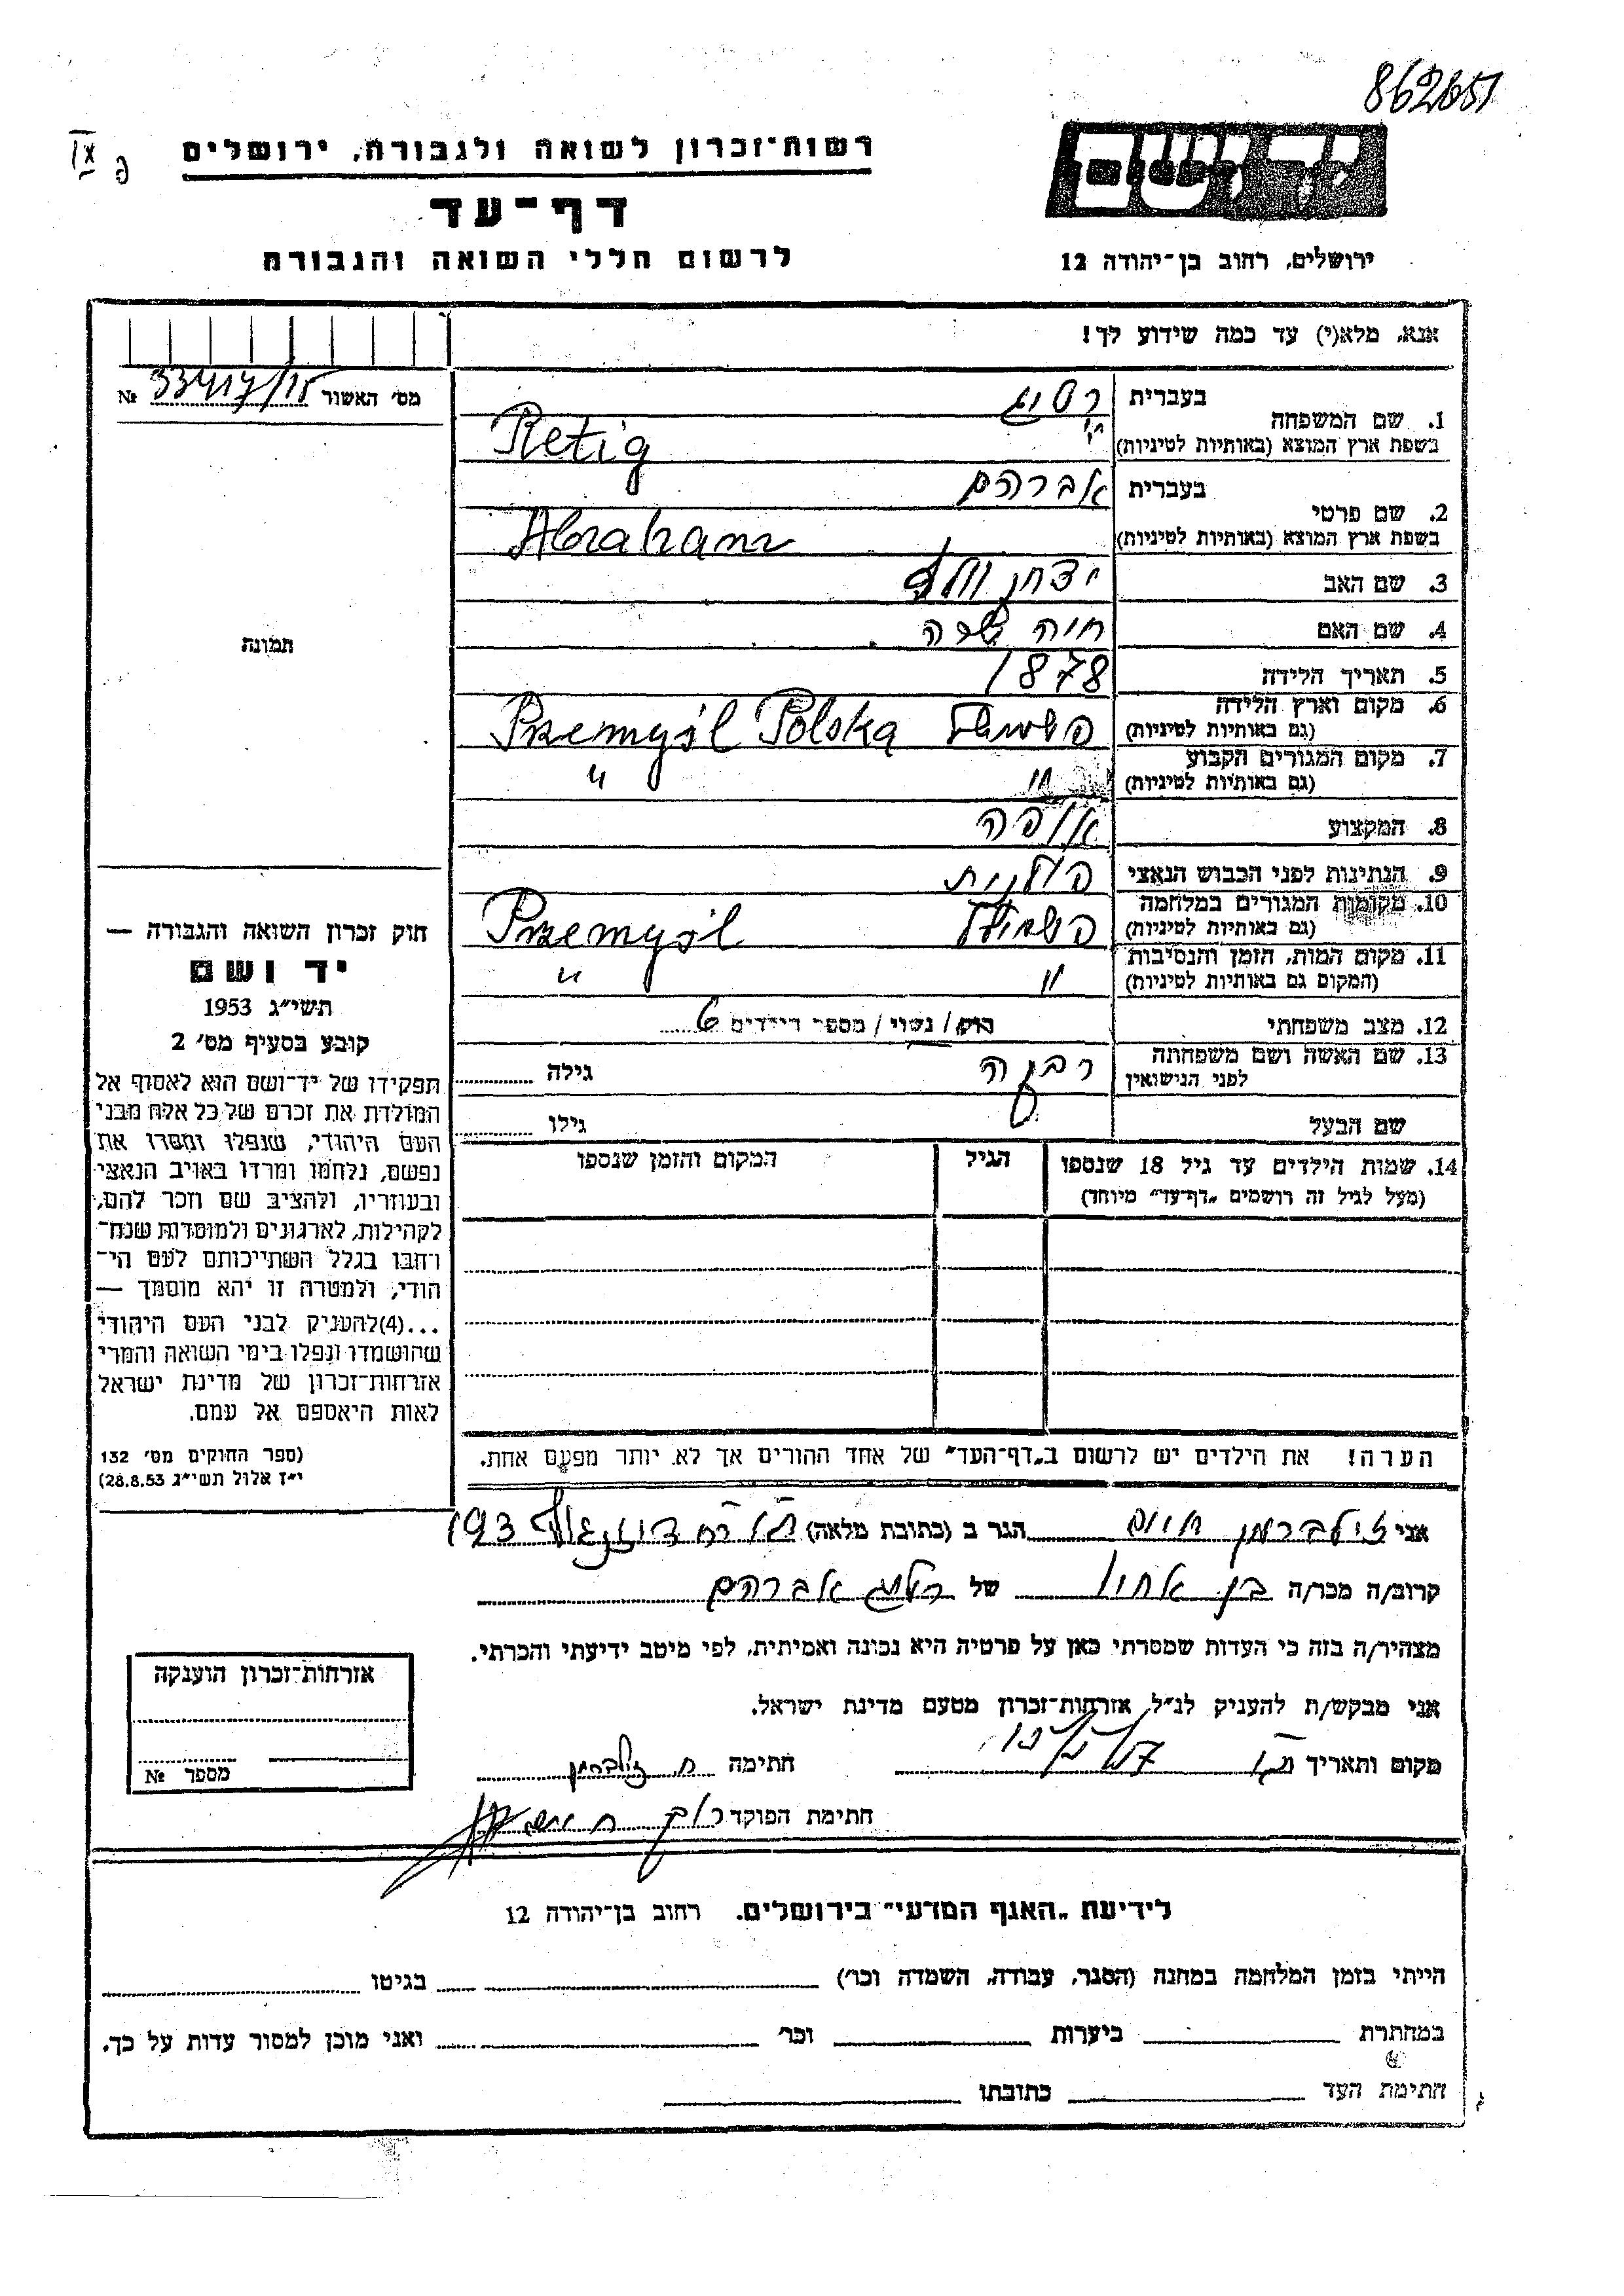 862651
IX
פ
רשות-זכרון לשואה ולגבורה, ירושלים
דף-עד
לרשום חללי השואה והגבורה
יד ושם
ירושלים, רחוב בן-יהודה 12
אנא, מלא(י) עד כמה שידוע לך!
מס' האשור 33417/15 №
תמונה
1. שם המשפחה
בעברית רטיג
בשפת ארץ המוצא (באותיות לטיניות) Retig
2. שם פרטי
בעברית אברהם
בשפת ארץ המוצא (באותיות לטיניות) Abraham
3. שם האב יצחק וולף
4. שם האם חיה שרה
5. תאריך הלידה 1878
6. מקום וארץ הלידה
(גם באותיות לטיניות) פשמישל Przemyśl Polska
7. מקום המגורים הקבוע
(גם באותיות לטיניות) " "
8. המקצוע אופה
9. הנתינות לפני הכבוש הנאצי פולנית
10. מקומות המגורים במלחמה
(גם באותיות לטיניות) פשמישל Przemyśl
11. מקום המות, הזמן והנסיבות
(המקום גם באותיות לטיניות) " "
12. מצב משפחתי רווק / נשוי / מספר הילדים 6
13. שם האשה ושם משפחתה
לפני הנישואין רבקה גילה
שם הבעל גילו
14. שמות הילדים עד גיל 18 שנספו הגיל המקום והזמן שנספו
(מעל לגיל זה רושמים "דף-עד" מיוחד)
הערה! את הילדים יש לרשום ב"דף-העד" של אחד ההורים אך לא יותר מפעם אחת.
חוק זכרון השואה והגבורה —
יד ושם
תשי"ג 1953
קובע בסעיף מס' 2
תפקידו של יד-ושם הוא לאסוף אל
המולדת את זכרם של כל אלה מבני
העם היהודי, שנפלו ומסרו את
נפשם, נלחמו ומרדו באויב הנאצי
ובעוזריו, ולהציב שם וזכר להם,
לקהילות, לארגונים ולמוסדות שנח-
רחבו בגלל השתייכותם לעם הי-
הודי, ולמטרה זו יהא מוסמך —
...(4)להעניק לבני העם היהודי
שהושמדו ונפלו בימי השואה והמרי
אזרחות-זכרון של מדינת ישראל
לאות היאספם אל עמם.
(ספר החוקים מס' 132
י"ז אלול תשי"ג 28.8.53)
אני זילברמן חיים הגר ב (כתובת מלאה) ת"א רח דיזנגוף 193
קרוב/ה מכר/ה בן אחיו של רטיג אברהם
מצהיר/ה בזה כי העדות שמסרתי כאן על פרטיה היא נכונה ואמיתית, לפי מיטב ידיעתי והכרתי.
אני מבקש/ת להעניק לנ"ל, אזרחות-זכרון מטעם מדינת ישראל.
מקום ותאריך ת"א חתימה ח. זילברמן
חתימת הפוקד
אזרחות-זכרון הוענקה
מספר №
לידיעת "האגף המדעי" בירושלים, רחוב בן-יהודה 12
הייתי בזמן המלחמה במחנה (הסגר, עבודה, השמדה וכו') בגיטו
במחתרת ביערות וכו' ואני מוכן למסור עדות על כך.
חתימת העד כתובתו